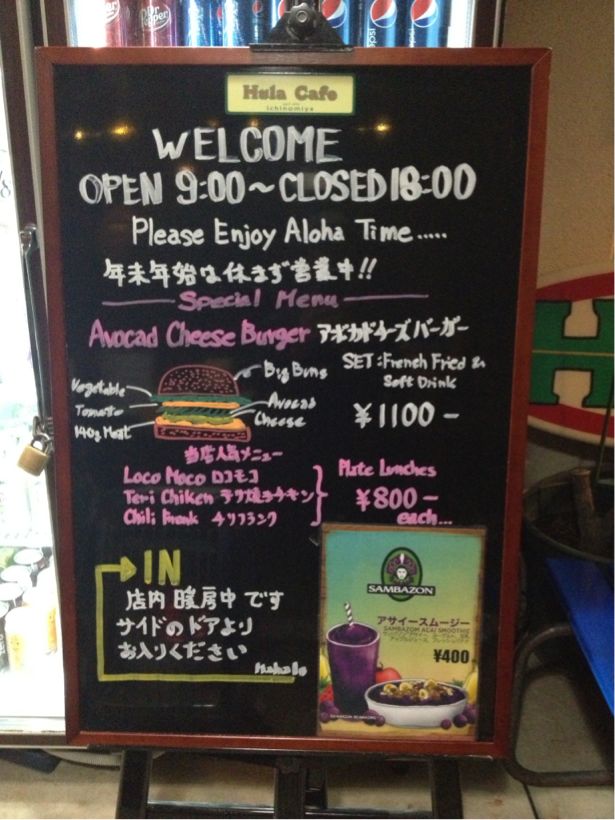 Dr Pepper
pepsi
pepsi
pepsi
Hula Cafe
ichinomiya
WELCOME
OPEN 9:00~CLOSED18:00
Please Enjoy Aloha Time.....
年末年始は休まず営業中!!
Special Menu
Avocad Cheese Burger アボカドチーズバーガー
SET:French Fried &
Soft Drink
¥1100-
Big Buns
Vegetable
Tomato
140g Meat
Avocad
Cheese
当店人気メニュー
Loco Moco ロコモコ
Teri Chiken テリ焼きチキン
Chili Frank チリフランク
Plate Lunches
¥800-
each...
IN
店内 暖房中です
サイドのドアより
お入りください
Mahalo
SAMBAZON
アサイースムージー
SAMBAZON ACAI SMOOTHIE
¥400